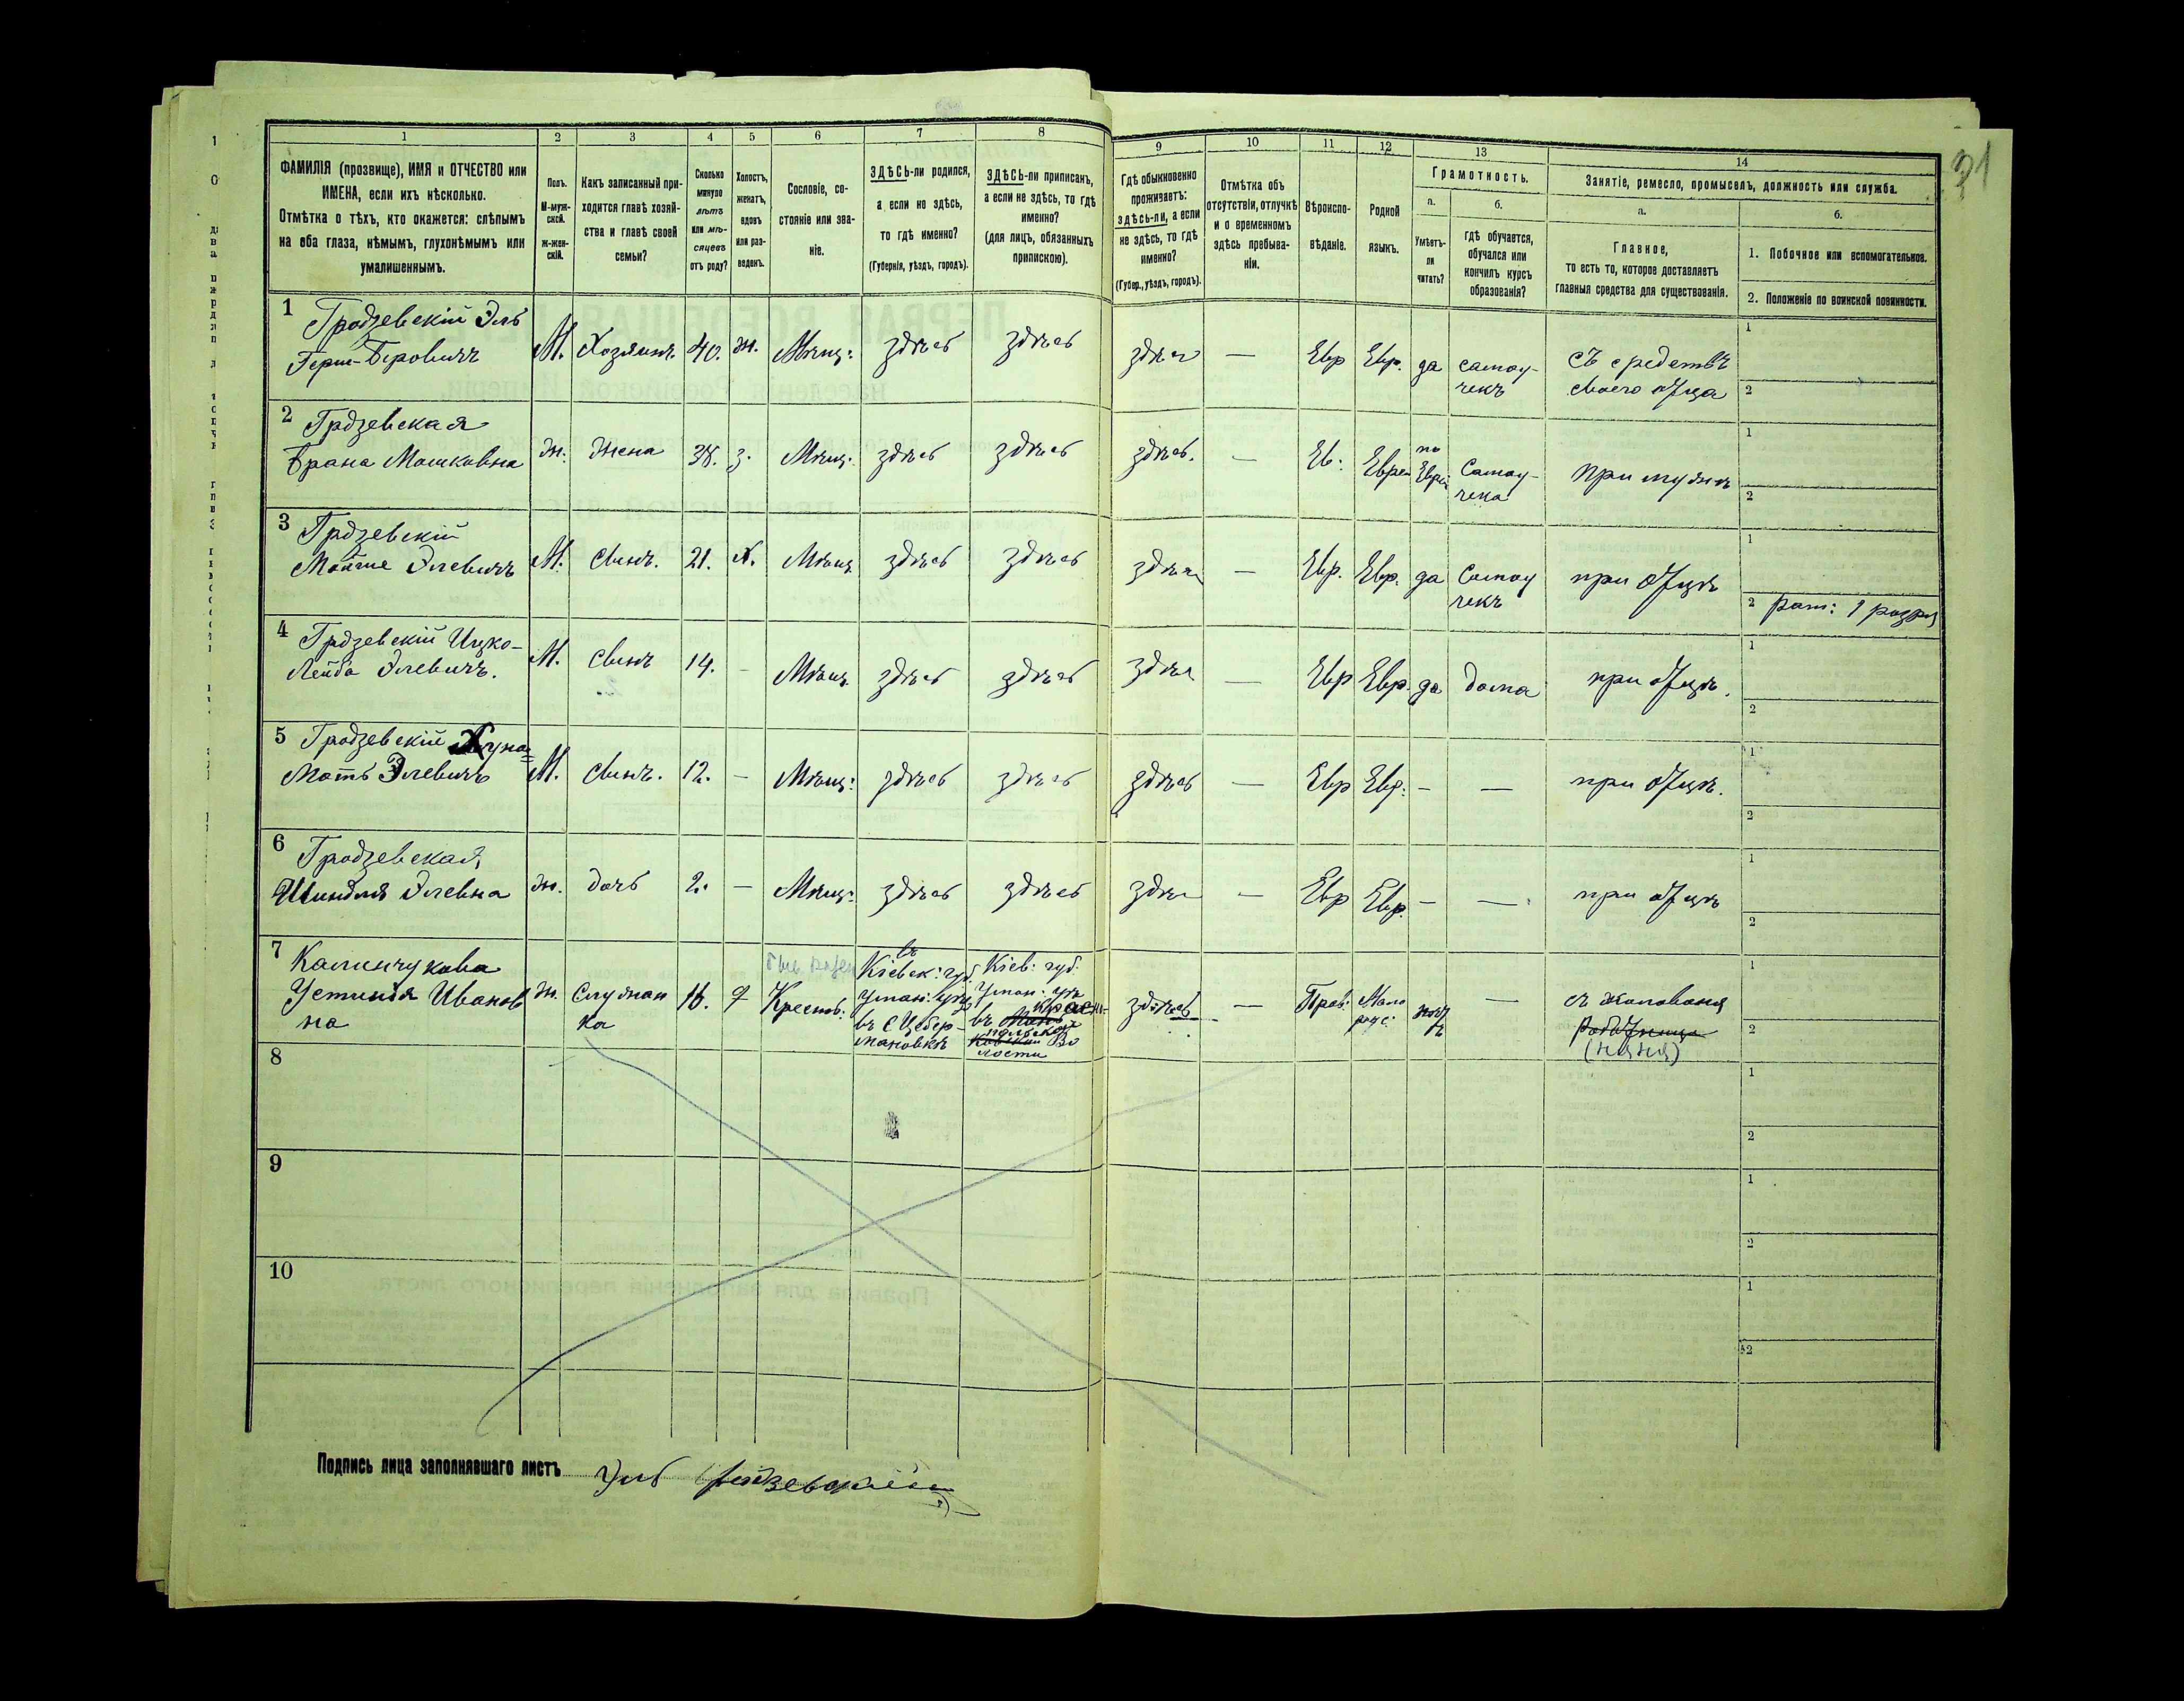 31
1 2 3 4 5 6 7 8 9 10 11 12 13 14
ФАМИЛІЯ (прозвище), ИМЯ и ОТЧЕСТВО или
ИМЕНА, если ихъ нѣсколько.
Отмѣтка о тѣхъ, кто окажется: слѣпымъ
на оба глаза, нѣмымъ, глухонѣмымъ или
умалишеннымъ.
Полъ.
М-муж-
ской.
ж-жен-
скій.
Какъ записанный при-
ходится главѣ хозяй-
ства и главѣ своей
семьи?
Сколько
минуло
лѣтъ
или мѣ-
сяцевъ
отъ роду?
Холостъ,
женатъ,
вдовъ
или раз-
веденъ.
Сословіе, со-
стояніе или зва-
ніе.
ЗДѢСЬ-ли родился,
а если не здѣсь,
то гдѣ именно?
(Губернія, уѣздъ, городъ).
ЗДѢСЬ-ли приписанъ,
а если не здѣсь, то гдѣ
именно?
(для лицъ, обязанныхъ
припискою).
Гдѣ обыкновенно
проживаетъ:
здѣсь-ли, а если
не здѣсь, то гдѣ
именно?
(Губер., уѣздъ, городъ).
Отмѣтка объ
отсутствіи, отлучкѣ
и о временномъ
здѣсь пребыва-
ніи.
Вѣроиспо-
вѣданіе.
Родной
языкъ.
Грамотность.
а.
Умѣетъ-
ли
читать?
б.
гдѣ обучается,
обучался или
кончилъ курсъ
образованія?
Занятіе, ремесло, промыселъ, должность или служба.
а.
Главное,
то есть то, которое доставляетъ
главныя средства для существованія.
б.
1. Побочное или вспомогательное.
2. Положеніе по воинской повинности.
1 Гродзевскій Эль
Герш-Беровичъ
М. Хозяинъ 40. ж. Мѣщ: здѣсь здѣсь здѣсь — Евр Евр. да самоу-
чекъ
съ средствъ
своего отца
1
2
2 Грдзевская
Брана Мошковна
ж. жена 38. з. Мѣщ: здѣсь здѣсь здѣсь. — Ев: Еврей по
Еврей
Самоу-
чека
при мужѣ
1
2
3 Грдзевскій
Мойше Элевичъ
М. сынъ. 21. х. Мѣщ здѣсь здѣсь здѣсь — Евр. Евр. да Самоу
чекъ
при отцѣ
1
2 рат: 1 разря
4 Грдзевскій Ицко-
Лейба Элевичъ.
М. сынъ 14. - Мѣщ. здѣсь здѣсь здѣсь — Евр Евр. да дома при отцѣ.
1
2
5 Гродзевскій Хуна=
Моть Элевичъ
М. сынъ. 12. - Мѣщ: здѣсь здѣсь здѣсь — Евр Евр: - — при отцѣ.
1
2
6 Гродзевская
Шиндля Элевна
ж. дочь 2. - Мѣщ: здѣсь здѣсь здѣсь — Евр Евр. - — при отцѣ
1
2
7 Калинчукова
Устинья Иванов
на
ж. Служан
ка
16. Крестъ:
въ
Кіевск: губ.
Уман: уѣз
въ С Цебер-
мановкѣ
Кіев: губ:
Уман: уѣз
въ
Во
лости
здѣсь — Прав: Мало
русс:
нѣтъ — съ жалованья
работница
(няня)
1
2
8 1
2
9 1
2
10 1
2
Подпись лица заполнявшаго листъ Эль Гродзевскій